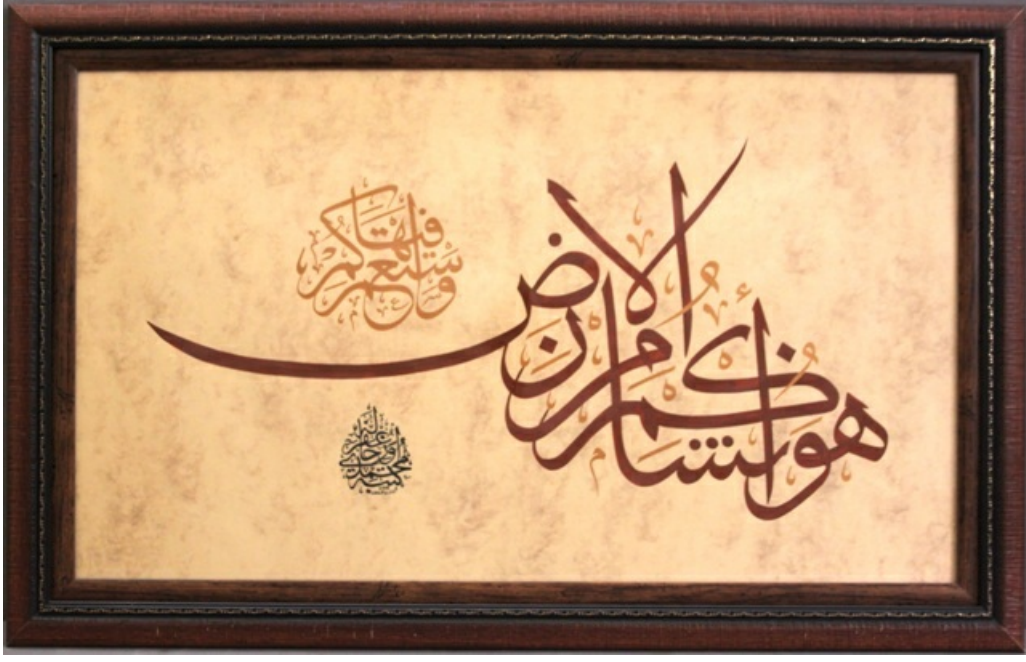 هُوَ أَنشَأَكُم مِّنَ الْأَرْضِ
وَاسْتَعْمَرَكُمْ فِيهَا